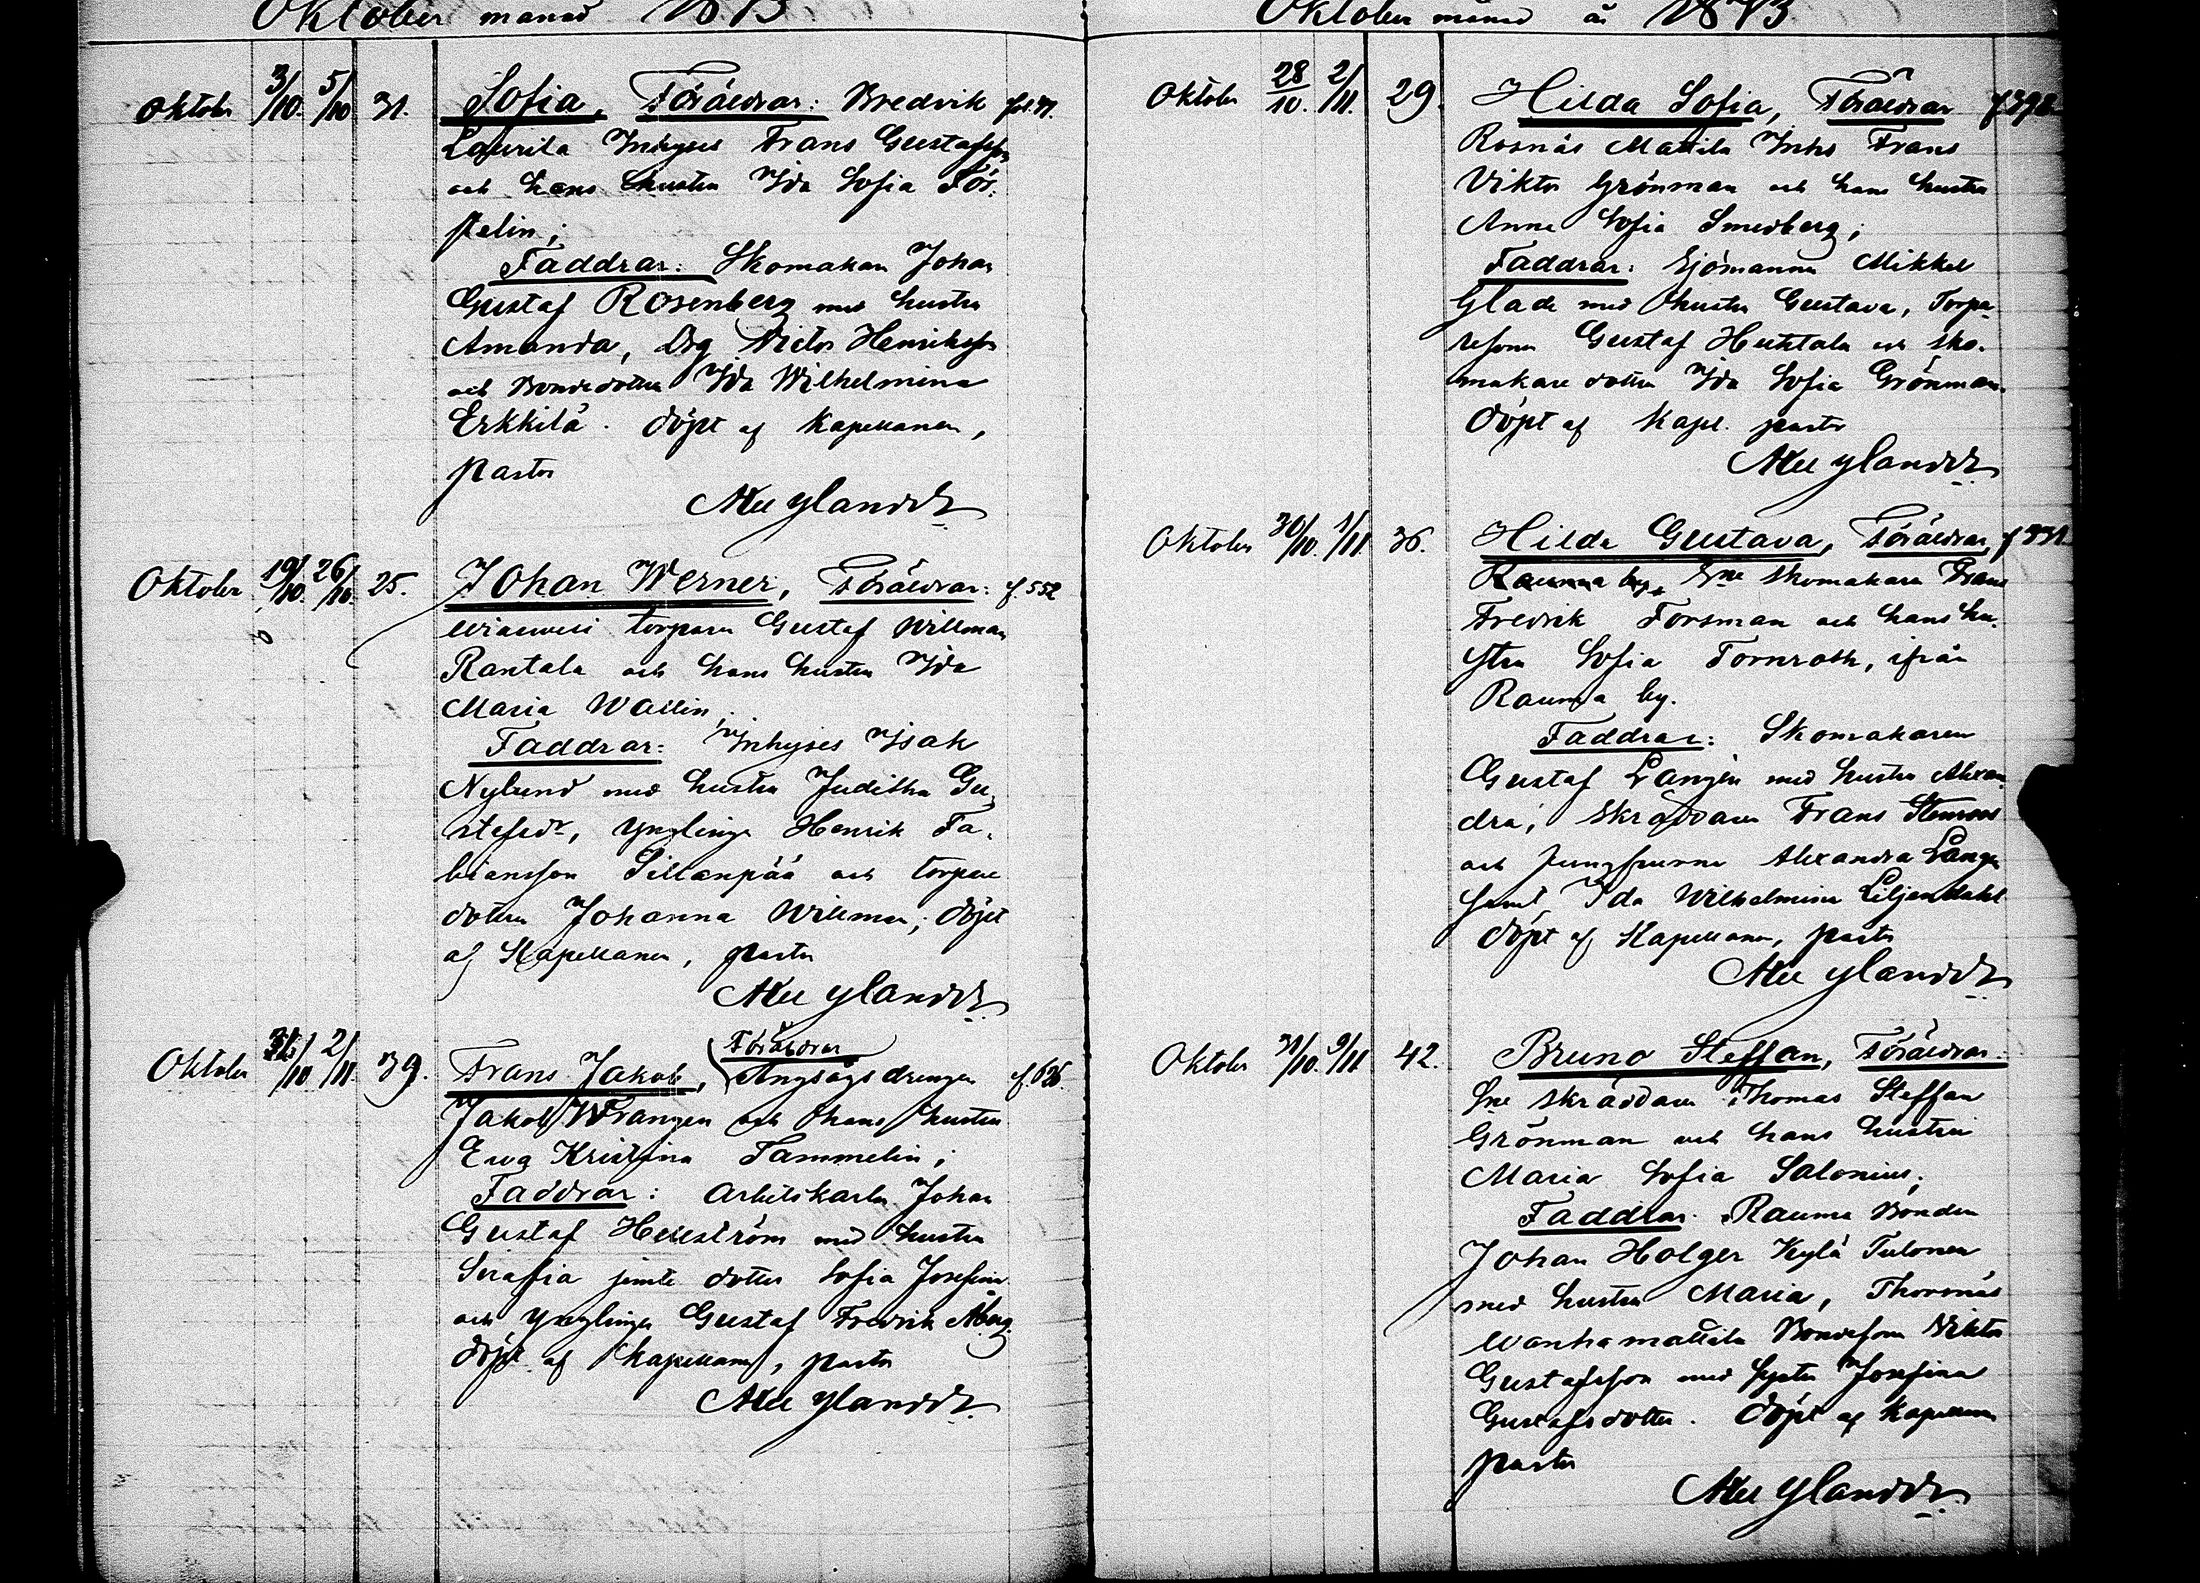 Oktober månad 1873
Oktober 3/10. 5/10 31. Sofia, Föräldrar: Bredvik
Laurila Inhyses Frans Gustafsson
och hans hustru Ida Sofia För-
pelin;
Faddrar: Skomakaren Johan
Gustaf Rosenberg med hustru
Amanda, Drg Victor Henriksson
och Bondedottren Ida Wilhelmina
Erkkilä. döpt af Kapellanen,
pastor
Ylander
Oktober 19/10. 26/10. 25. Johan Werner, Föräldrar: f. 552
torparen Gustaf Willman
Rantala och hans hustru Ida
Maria Wallin,
Faddrar: Inhyses Isak
Nylund med hustru Juditha Gu-
stafsdr, Ynglinge Henrik Fa-
biansson Sillanpää och torpare
dottren Johanna Willman; döpt
af Kapellanen, pastor
Ylander
Oktober 31/10. 2/11. 39. Frans Jakob, Föräldrar
Ångsågs drengen
Jakob Wrangen och hans hustru
Eva Kristina Tammelin;
Faddrar: arbetskarlen Johan
Gustaf Hellström med hustru
Serafia jemte dotter Sofia Josefina
och Ynglingen Gustaf Fredrik Åberg.
döpt af Kapellanen, pastor
Ylander
Oktober månad år 1873
Oktober 28/10. 2/11. 29. Hilda Sofia, Föräldrar
Rosnäs Mattila Inhs Frans
Viktor Grönman och hans hustru
Anna Sofia Smedberg;
Faddrar: Sjömannen Mikkel
Glad med hustru Gustava, Torpa-
resonen Gustaf Huhtala och sko-
makare dottren Ida Sofia Grönman.
döpt af Kapl. pastor
Ylander
Oktober 30/10. 1/11. 36. Hilda Gustava, Föräldrar, f 331.
Rauma by, Sne skomakaren Frans
Fredrik Forsman och hans hu-
stru Sofia Tornroth, ifrån
Rauma by.
Faddrar: Skomakaren
Gustaf Langèn med hustru Alexan-
dra, Skräddaren Frans Stenroos
och Jungfrurna Alexandra Langen
samt Ida Wilhelmina Liljendahl
döpt af Kapellanen, pastor
Ylander
Oktober 31/10. 9/11 42. Bruno Steffan, Föräldrar:
Sne skräddaren Thomas Steffan
Grönman och hans hustru
Maria Sofia Salonius;
Faddrar: Rauma Bonden
Johan Holger Kylä Tulonen
med hustru Maria, Thornäs
Wanhamattila Bondeson Viktor
Gustafsson med syster Josefina
Gustafsdotter. döpt af Kapellanen
pastor
Ylander